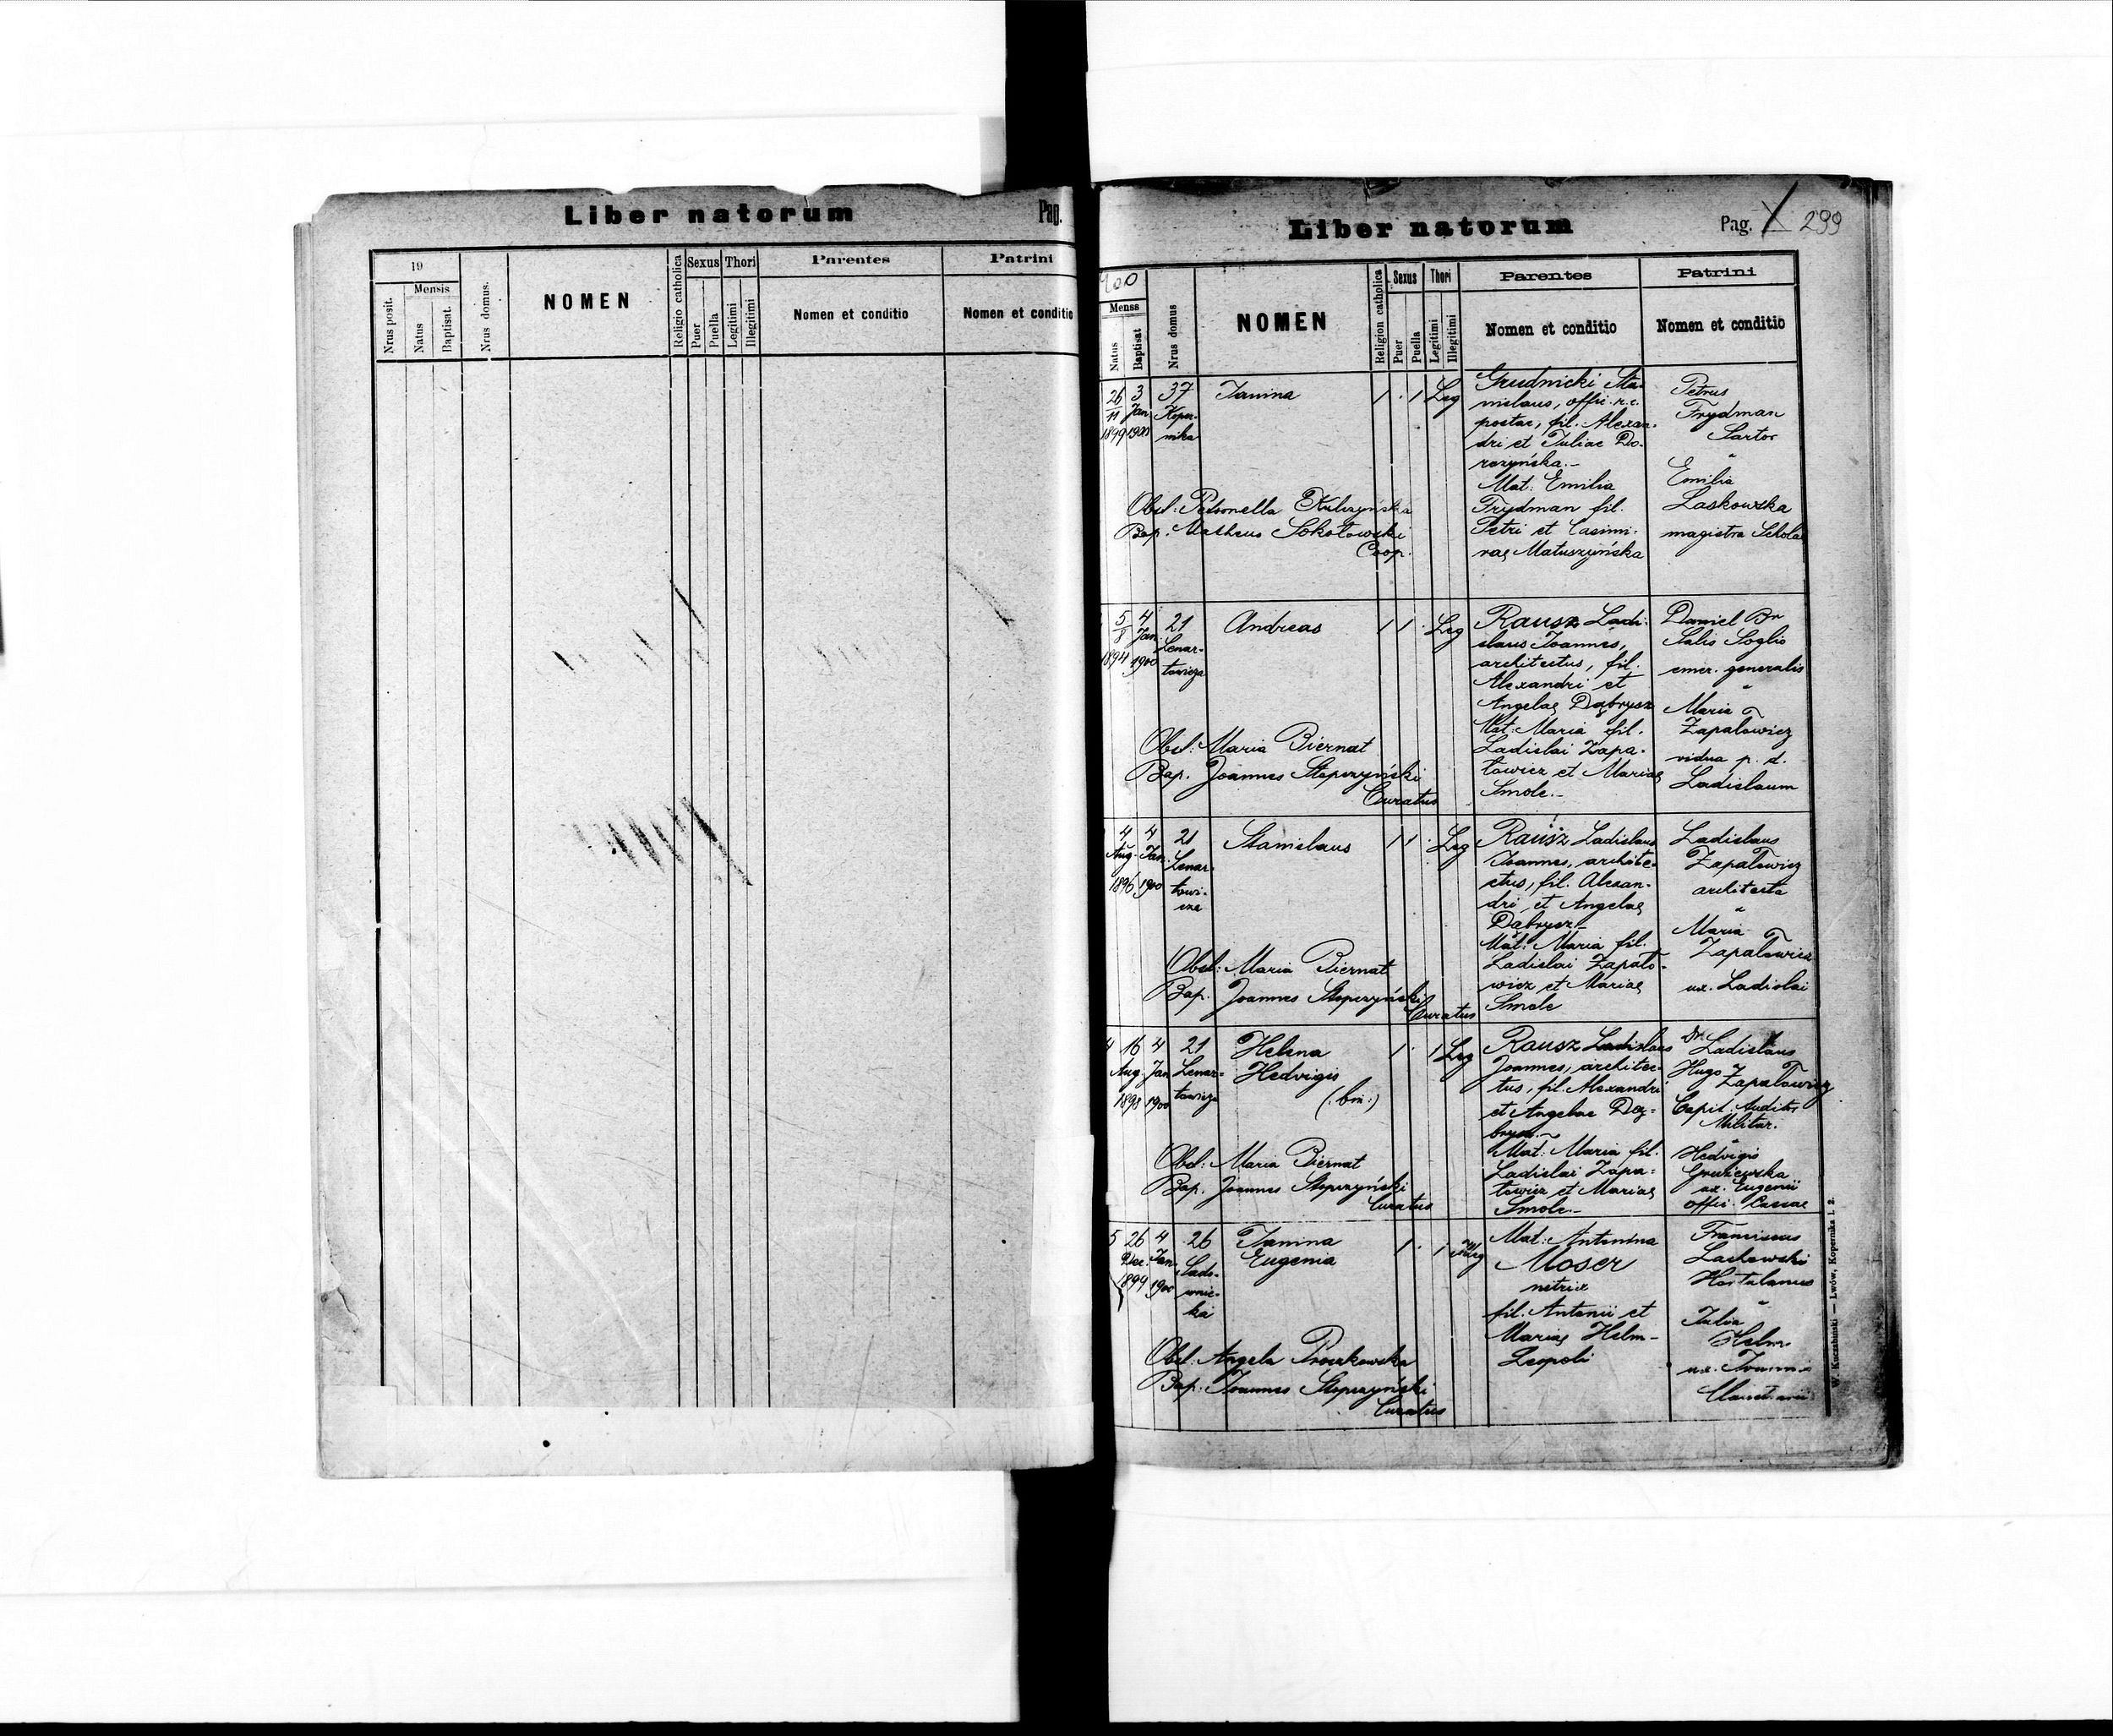 Liber natorum Pag.
19
Mensis
Nrus posit.
Natus
Baptisat.
Nrus domus.
NOMEN
Religio catholica
Sexus
Puer
Puella
Thori
Legitimi
Illegitimi
Parentes
Nomen et conditio
Patrini
Nomen et conditio
Liber natorum Pag. 299
900
Menss
Natus
Baptisat
Nrus domus
NOMEN
Religion catholica
Sexus
Puer
Puella
Thori
Legitimi
Illegitimi
Parentes
Nomen et conditio
Patrini
Nomen et conditio
26
11
1899
3
Jan
1900
37
Koper-
nika
Janina
1 1 Leg
Grudnicki Sta-
nislaus, offic. r.c.
postar, fil. Alexan-
dri et Juliae Do-
rozyńska.-
Mat: Emilia
Frydman fil.
Petri et Casimi-
rae Matuszyńska
Petrus
Frydman
Sartor
Emilia
Laskowska
magistra Schola
Obst: Petronella
Bap. Matheus Sokołowski
Coop.
5
8
1894
4
Jan
1900
21
Lenar-
towicza
Andreas
1 1 Leg
Rausz Ladi-
slaus Joannes,
architectus, fil.
Alexandri et
Angelae Dąbrysz
Mat: Maria fil.
Ladislai Zapa-
łowicz et Mariae
Smole.-
Daniel Br
Salis Soglio
emer. generalis
Maria
Zapałowicz
vidua p. d.
Ladislaum
Obst: Maria Biernat
Bap. Joannes Stopczyński
Curatus
4
Aug
1896
4
Jan
1900
21
Lenar-
towi-
cza
Stanislaus
1 1 Leg
Rausz Ladislaus
Joannes, archite-
ctus, fil. Alexan-
dri et Angelae
Dąbrysz
Mat: Maria fil.
Ladislai Zapało-
wicz et Mariae
Smole
Ladislaus
Zapałowicz
architecta
Maria
Zapałowicz
ux. Ladislai
Obst: Maria Biernat
Bap. Joannes Stopczyński
Curatus
4
16
Aug
1898
4
Jan
1900
21
Lenar-
towicza
Helena
Hedvigis
(bin:)
1 1 Leg
Rausz Ladislaus
Joannes, architec-
tus, fil. Alexandri
et Angelae Dą-
brysz.-
Mat: Maria fil.
Ladislai Zapa-
łowicz et Mariae
Smole.-
Dr. Ladislaus
Hugo Zapałowicz
Capit. Auditor
Militar.
Hedvigis
Gružewska
ux. Eugenii
offic. Cassae
Obst: Maria Biernat
Bap. Joannes Stopczyński
Curatus
5
26
Dec.
1899
4
Jan
1900
26
Sado-
wnic-
ka
Janina
Eugenia
1 1 Illeg
Mat: Antonina
Moser
netrix
fil. Antonii et
Mariae Helm-
Leopoli
Franciscus
Lachowski
Hortulanus
Julia
Helm
ux.
Obst: Angela Proszkowska
Bap. Joannes Stopczyński
Curatus
W. Kuczabiński — Lwów, Kopernika l. 2.